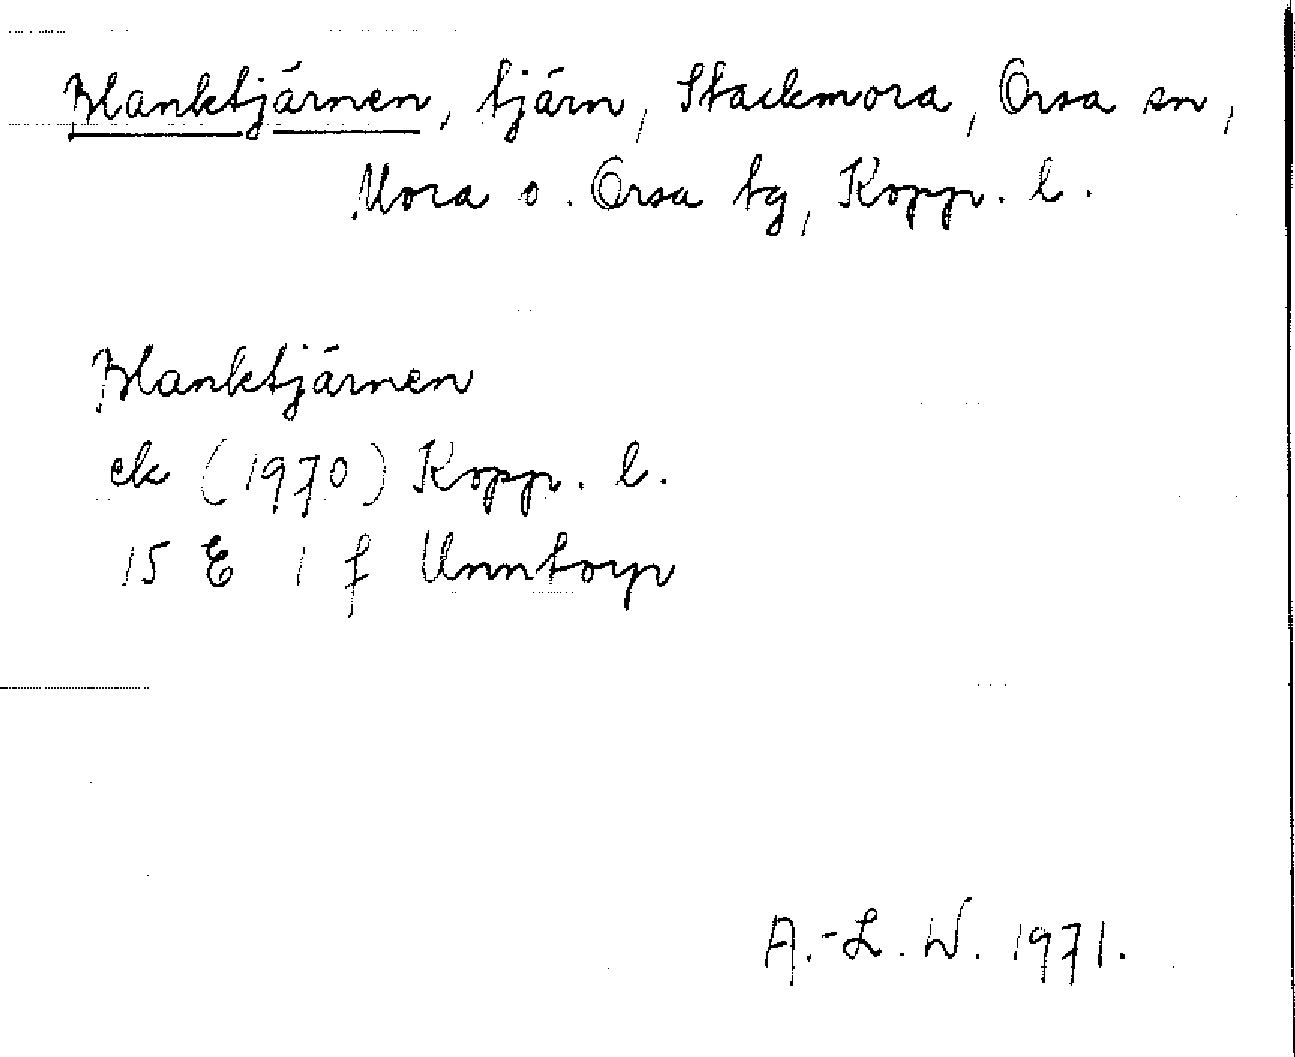 Blanktjärnen, tjärn, Stackmora, Orsa sn,
Mora o. Orsa tg, Kopp. l.
Blanktjärnen
ek (1970) Kopp. l.
15 E 1 f Unntorp
A.-L. W. 1971.